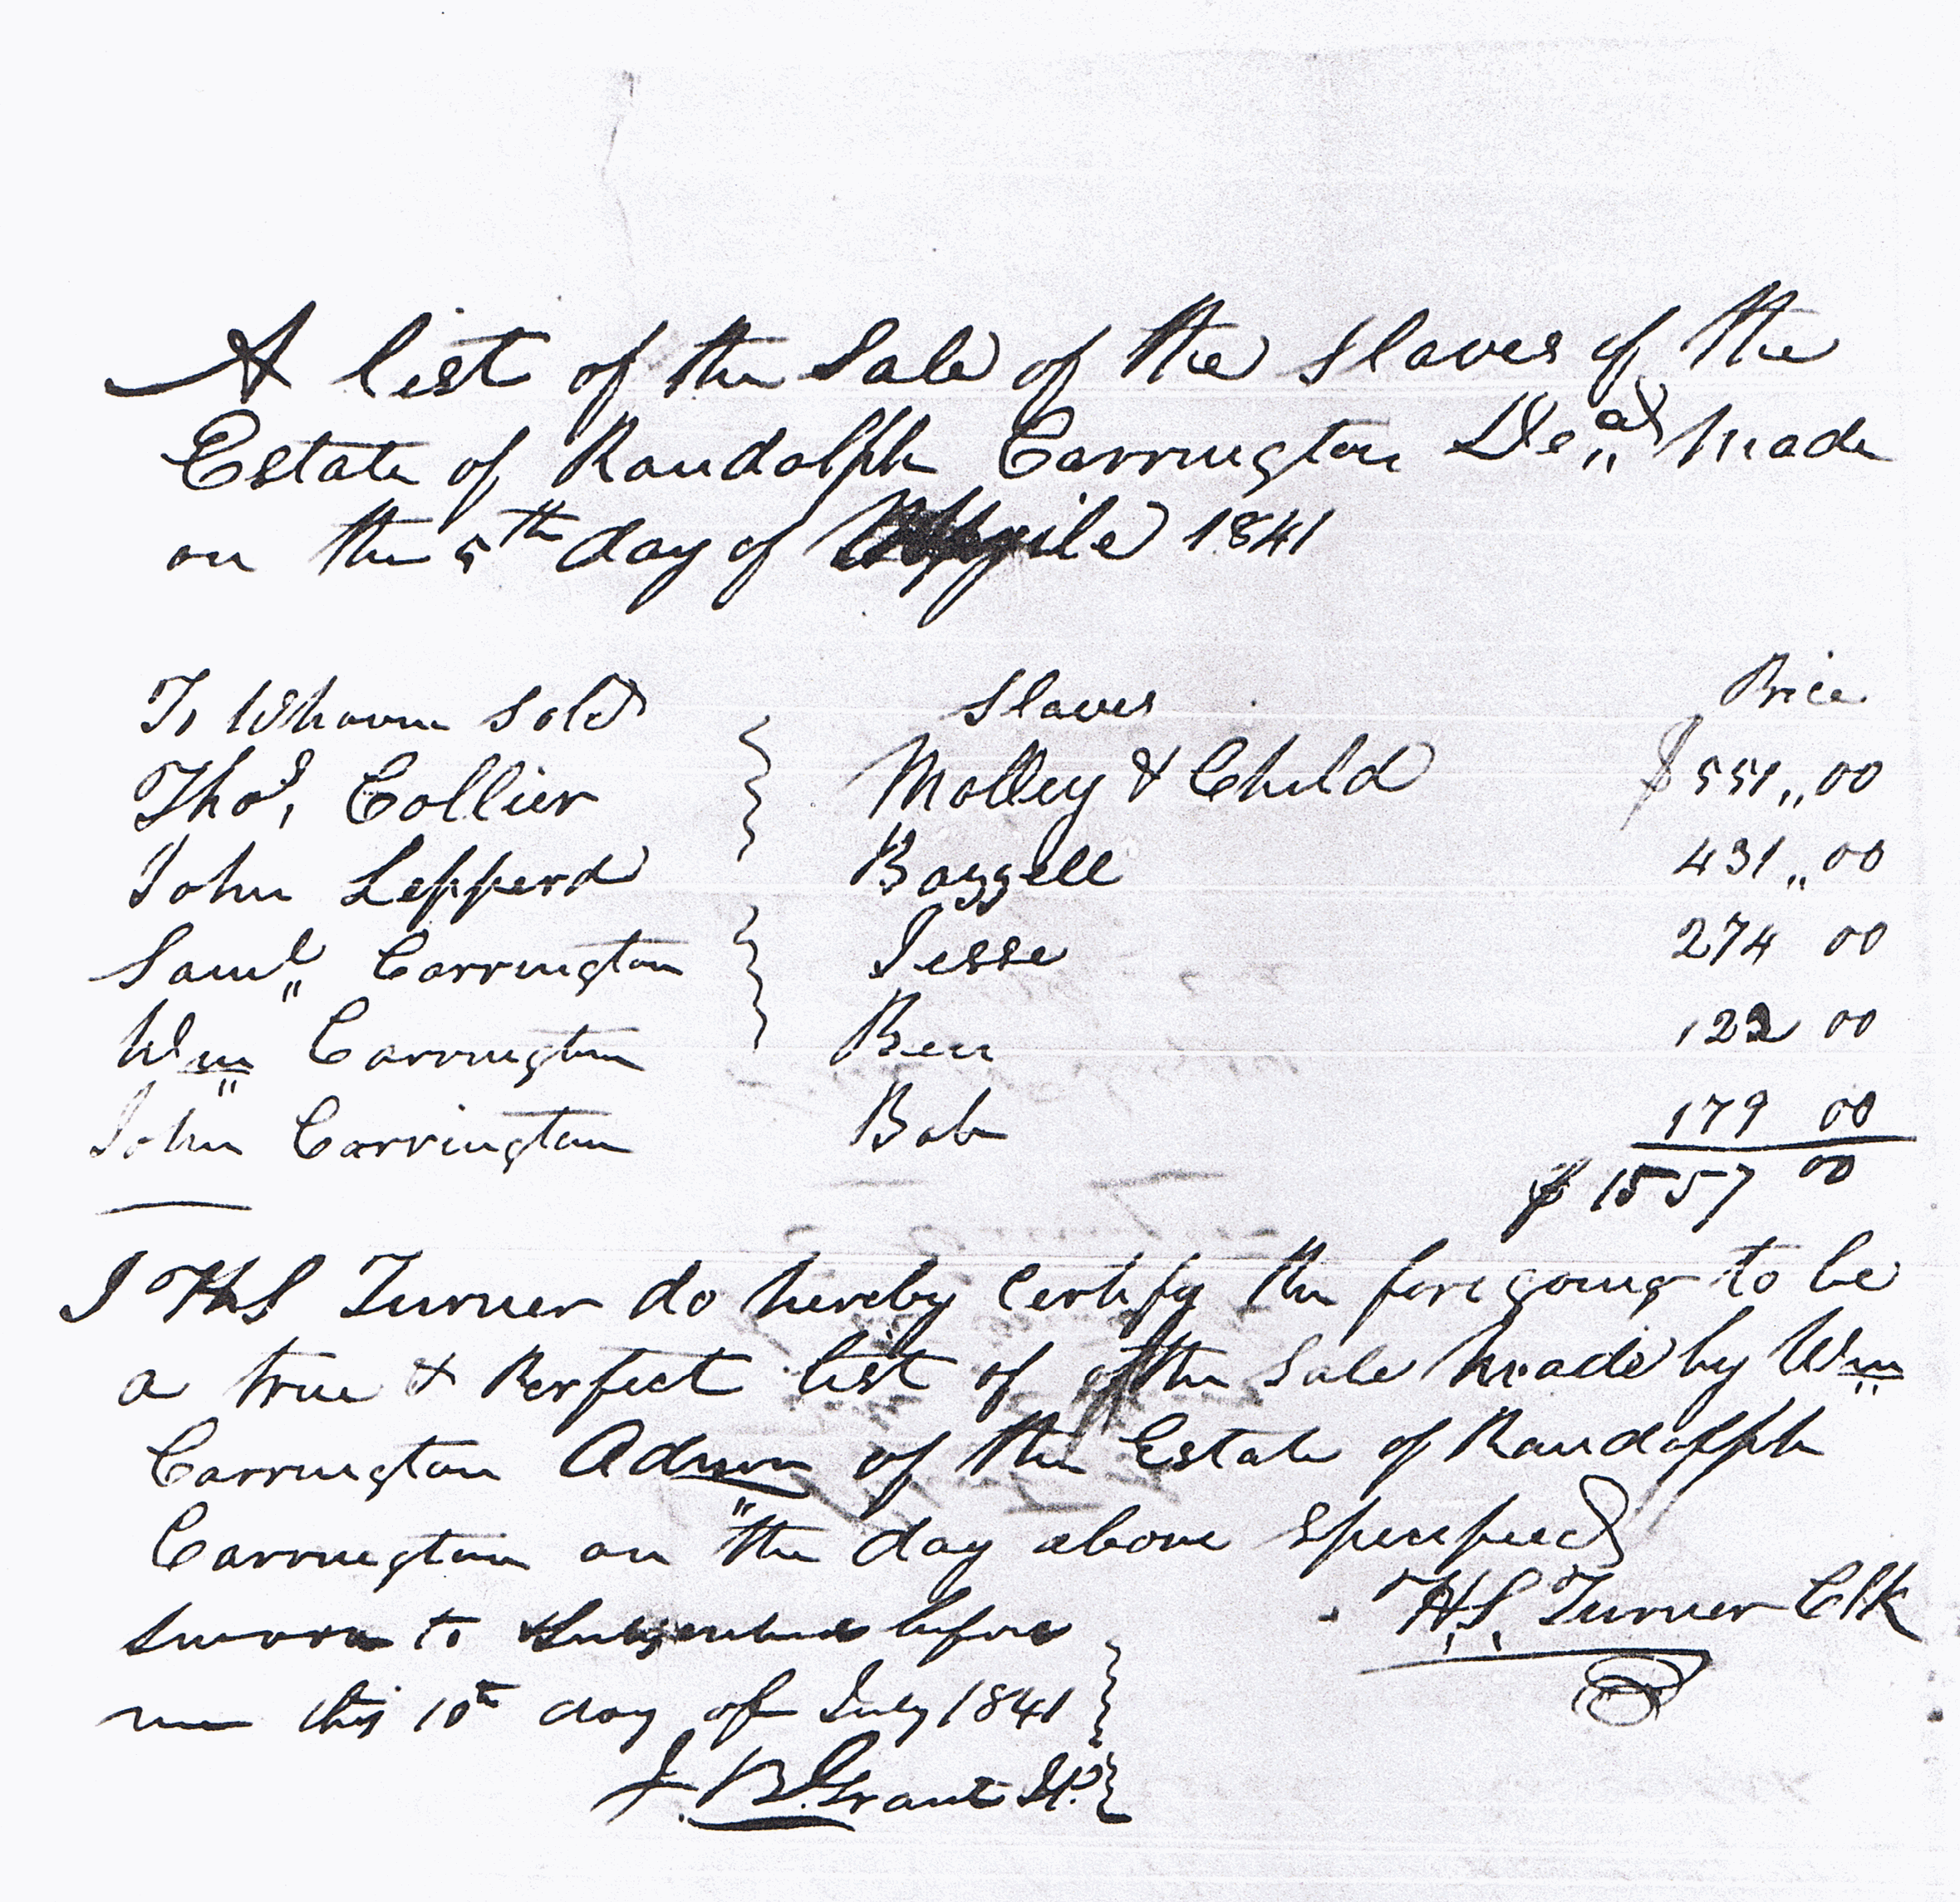 A list of the Sale of the Slaves of the
Estate of Randolph Carrington Decd Made
on the 5th day of Aprile 1841
To Whoum Sold Slaves Price
Thos, Collier Molley & Child $551,,00
John Lepperd Bazzell 431,,00
Saml,, Carrington Jesse 274 00
Wm Carrington Ben 122 00
John Carrington Bob 179 00
$ 1557 00
I H S Turner do hereby Certify the fore going to be
a true & Perfect list of of the Sale Made by Wm
Carrington Admr of the Estate of Randolph
Carrington on the day above Specified
H.S. Turner Clk
Sworn to & Subscribed before
me this 10th day of July 1841
J. B. Grant J.P.